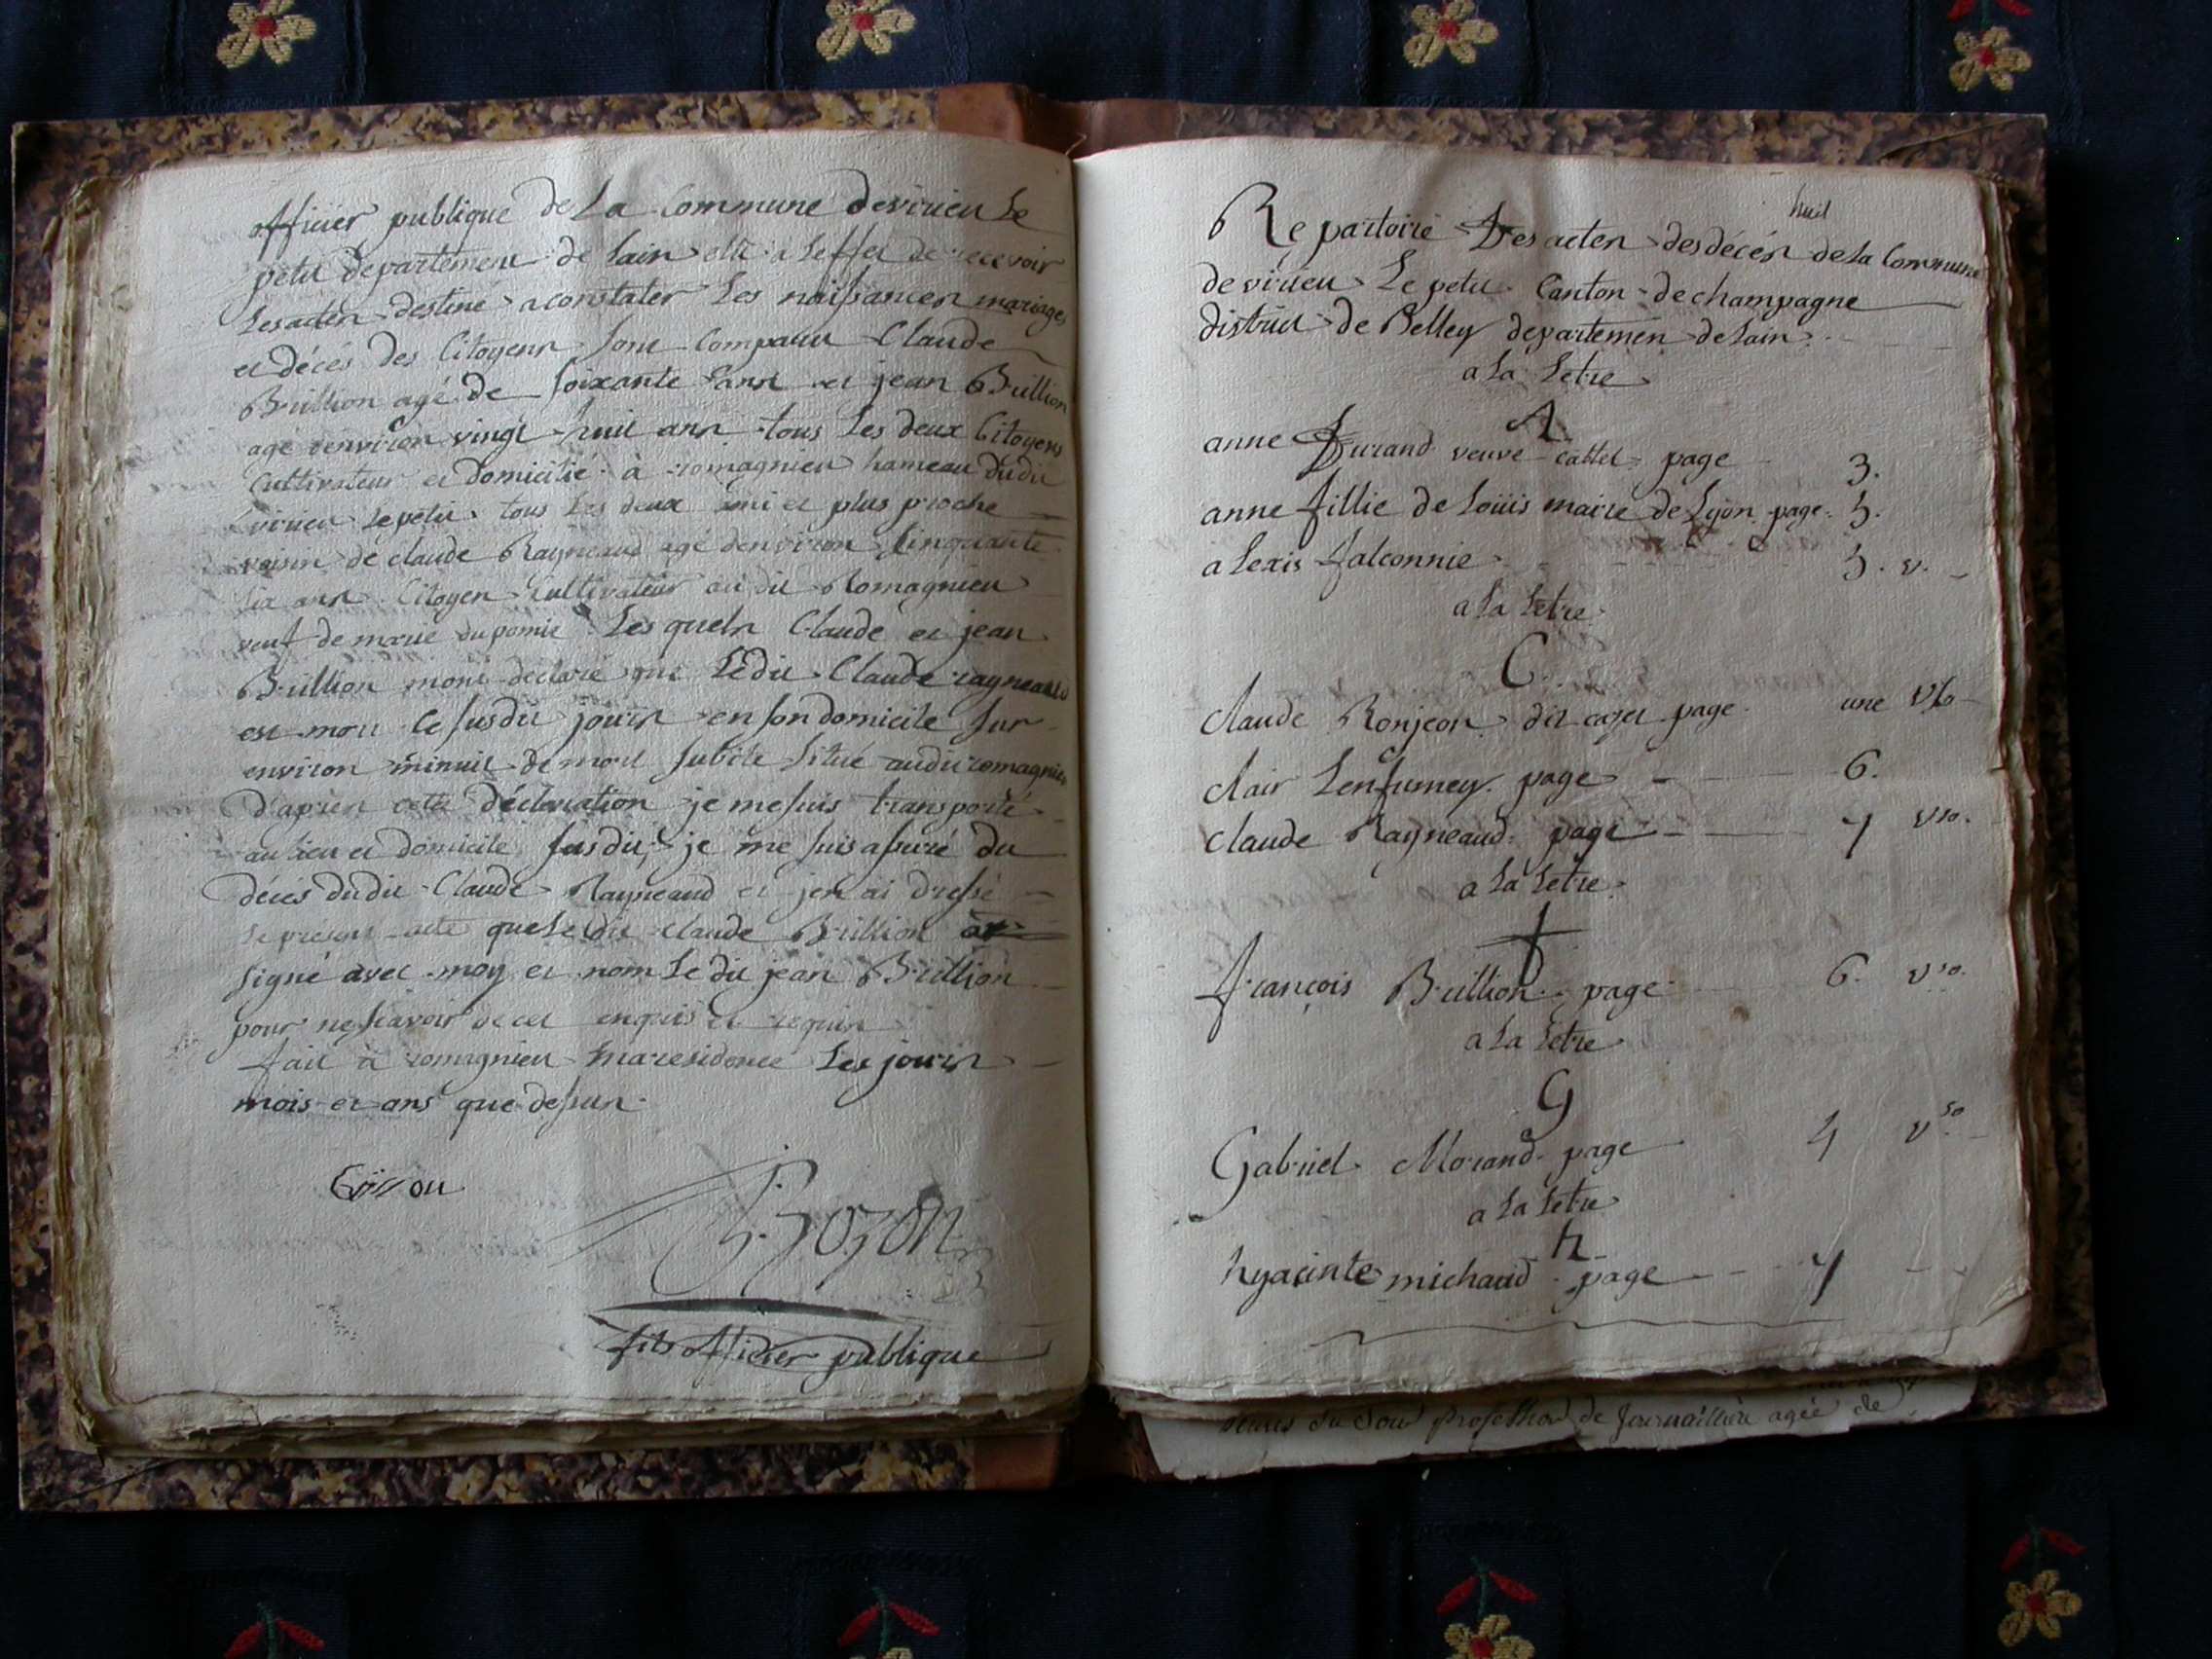 officier publique de La Commune devirieu Le
petit departement de Lain elu a Leffet de recevoir
Les acten destiné a constater Les naissancen mariages
et décés des Citoyens sont Comparu Claude
Brillion agé de soixante ans et jean Brillion
agé denviron vingt huit ans tous Les deux Citoyens
Cultivateur et domicilié à romagnieu hameau dudit
virieu Le petit tous Les deux ami et plus proche
voisin de claude Rayneaud agé denviron Cinquante
six ans Citoyen Cultivateur audit Romagnieu
veuf de marie dupomié Lesquels Claude et jean
Brillion mont declaré que Ledit Claude rayneaud
est mort Le susdit jour en son domicile sur
environ minuit de mort subite situé audit romagnieu
D'aprés cette déclaration je me suis transporté
au Lieu et domicile susdit, je me suis assuré du
décés dudit Claude Rayneaud et jen ai dressé
Le présent acte que Ledit Claude Brillion
signé avec moy et nom Ledit jean Brillion
pour ne sçavoir de cet enquis et requis
fait à romagnieu ma residence Les jour
mois et ans que dessus
Bozon
fils officier publique
huit
Repartoire Des acten des décés de La Commune
de virieu Le petit Canton de champagne
district de Belley departemen de Lain
a La Letre
A
anne Durand veuve cattet page 3.
anne fillie de Loüis maire de Lyon page 5.
alexis falconnie 5. v.
a La Letre
C
claude Ronjeon dit cajet page une vso
clair Lenfumey page 6.
claude Rayneaud page 7 vso.
a La Letre
f
françois Brillion page 6. vso.
a La Letre
G
Gabriel Morand page 4 vso
a La Letre
h
hyacinte michaud page 7
heures du Soir profession de Journaillière agée de